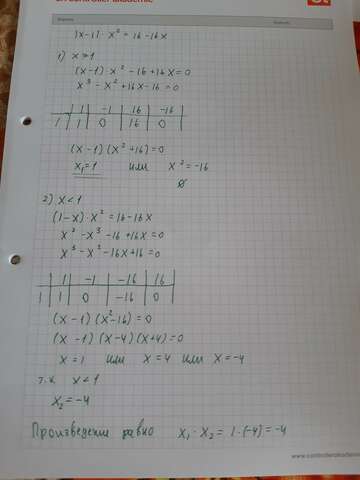 |x-1| · x² = 16-16x
1) x ≥ 1
(x-1) x² -16+16x=0
x³ - x² +16x-16 =0
1 -1 16 -16
1 1 0 16 0
(x-1)(x²+16)=0
x₁=1 или x²=-16
∅
2) x<1
(1-x)·x²=16-16x
x² - x³ -16 +16x=0
x³ - x² -16x+16=0
1 -1 -16 16
1 1 0 -16 0
(x-1)(x²-16)=0
(x-1)(x-4)(x+4)=0
x=1 или x=4 или x=-4
т.к. x<1
x₂=-4
Произведение равно x₁·x₂=1·(-4)=-4